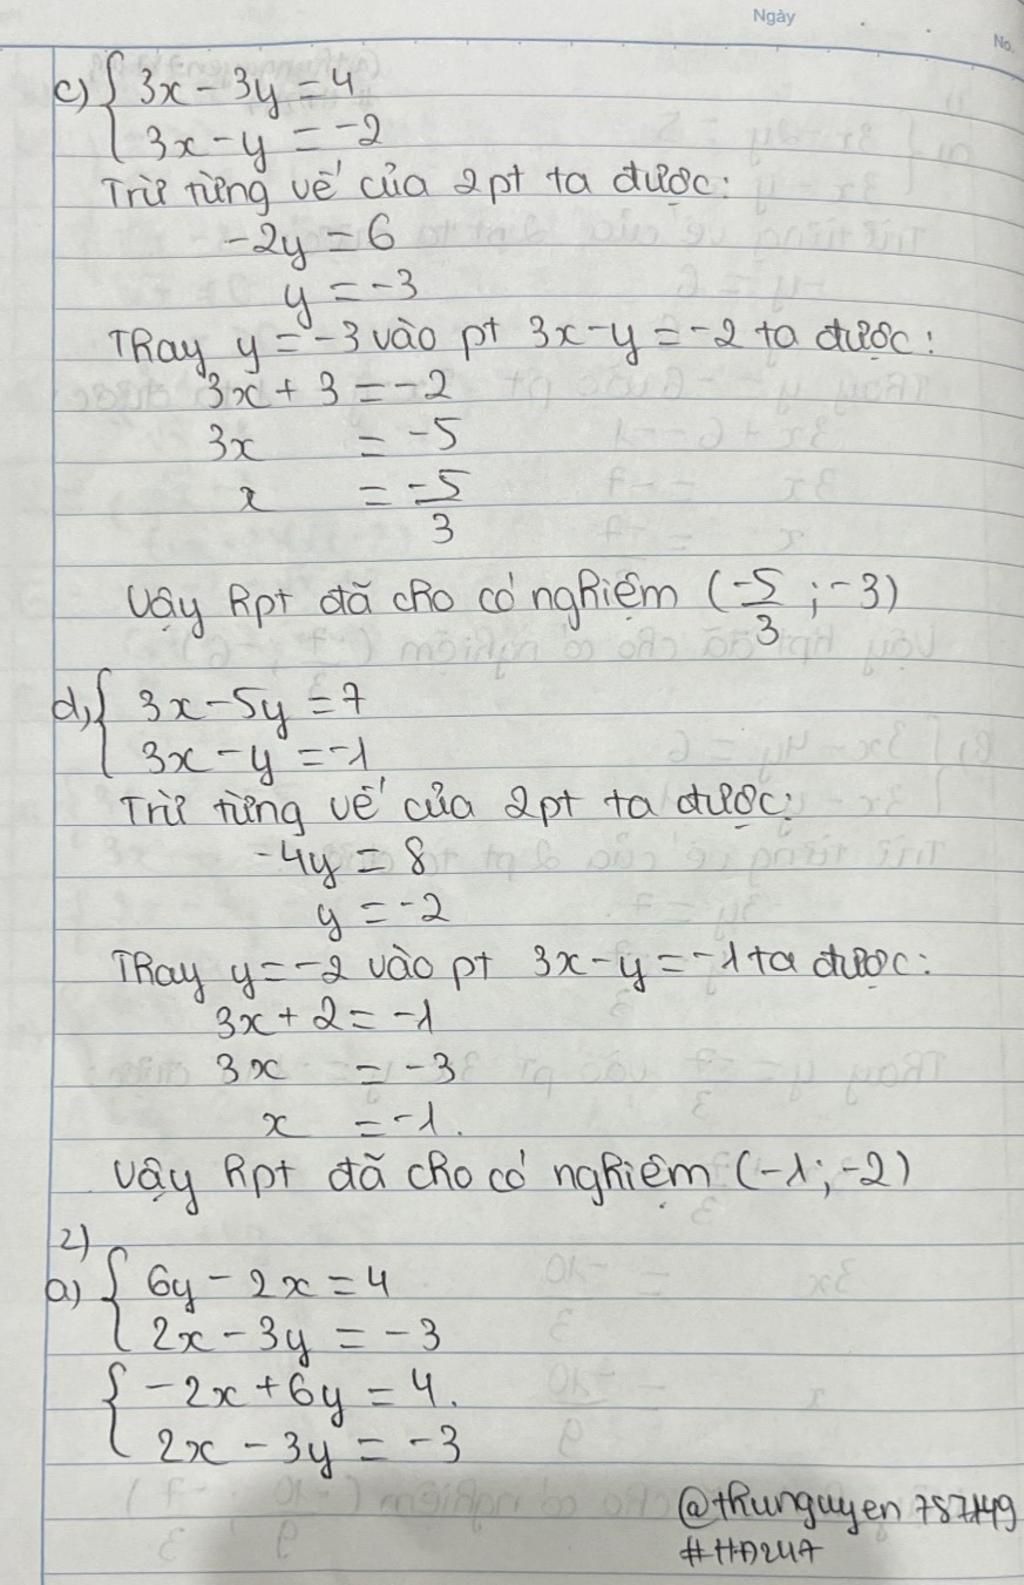 Ngày
No.
c) { 3x - 3y = 4
3x - y = -2
Trừ từng vế của 2pt ta được:
-2y = 6
y = -3
Thay y = -3 vào pt 3x - y = -2 ta được:
3x + 3 = -2
3x = -5
x = -5/3
Vậy hpt đã cho có nghiệm (-5/3; -3)
d, { 3x - 5y = 7
3x - y = -1
Trừ từng vế của 2pt ta được:
-4y = 8
y = -2
Thay y = -2 vào pt 3x - y = -1 ta được:
3x + 2 = -1
3x = -3
x = -1.
Vậy hpt đã cho có nghiệm (-1; -2)
2)
a) { 6y - 2x = 4
2x - 3y = -3
{ -2x + 6y = 4.
2x - 3y = -3